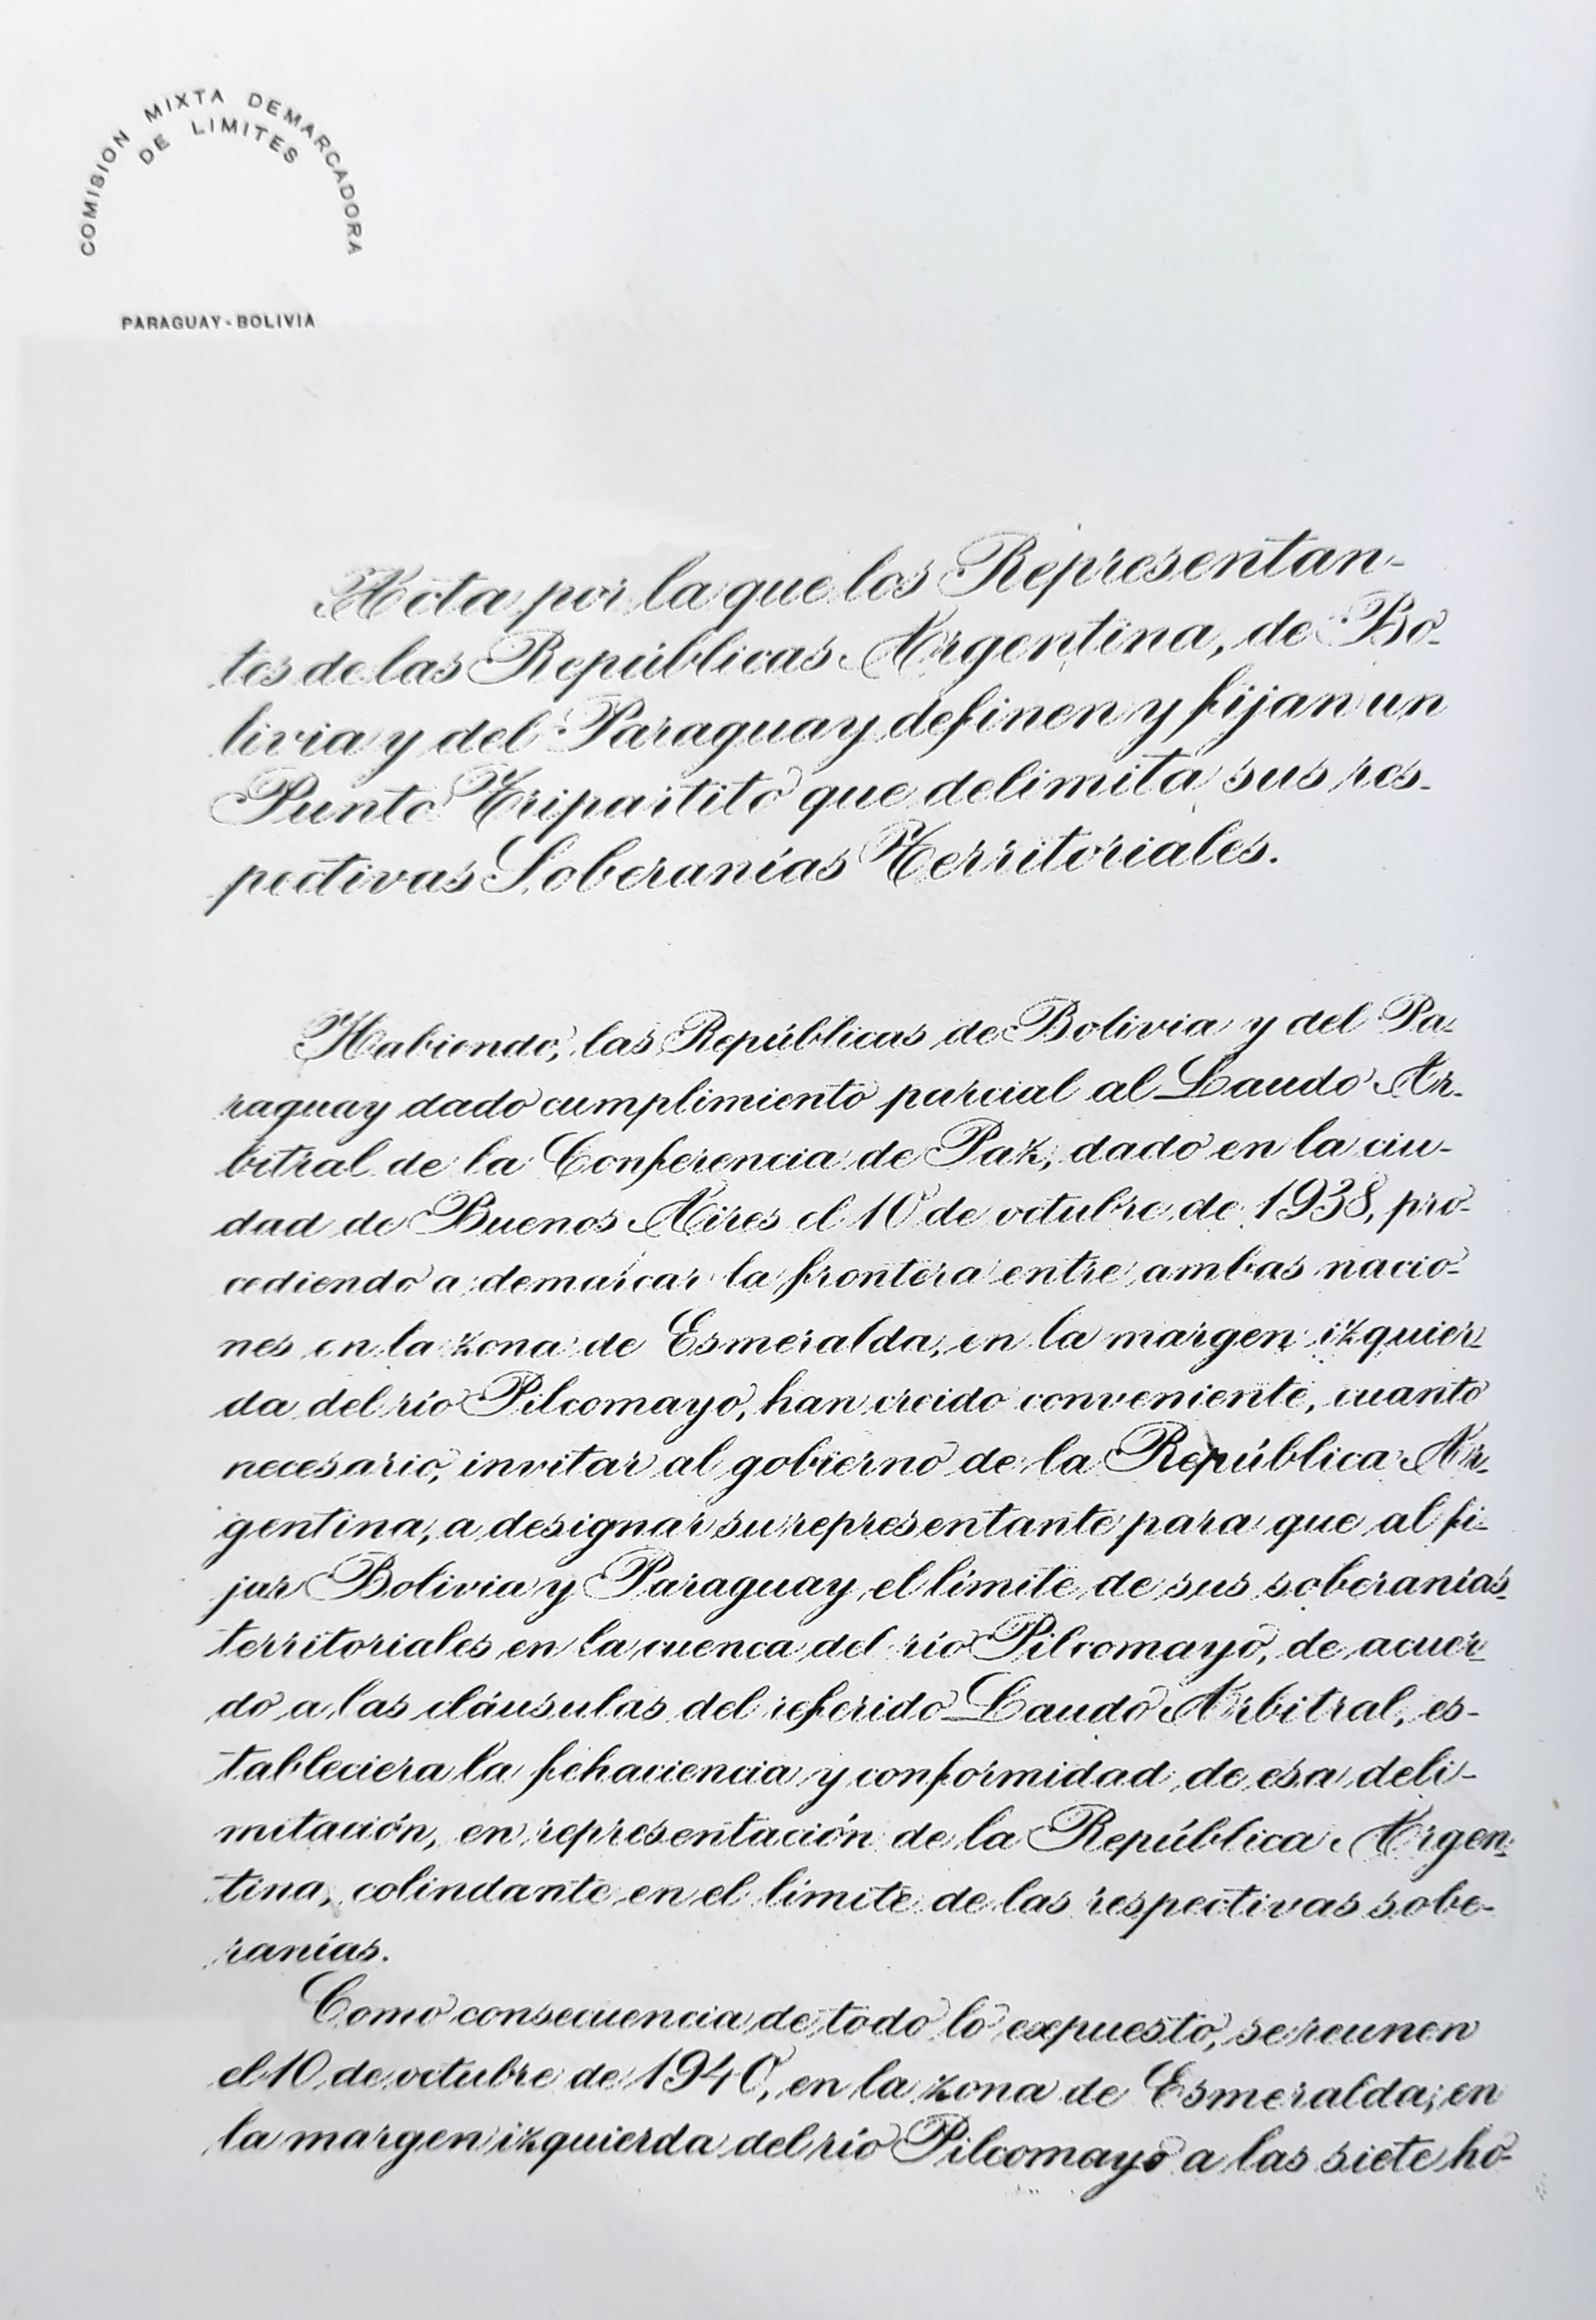 COMISION MIXTA DEMARCADORA
DE LIMITES
PARAGUAY - BOLIVIA
Acta por la que los Representan-
tes de las Repúblicas Argentina, de Bo-
livia y del Paraguay definen y fijan un
Punto Tripartito que delimita sus res-
pectivas Soberanías Territoriales.
Habiendo, las Repúblicas de Bolivia y del Pa-
raguay dado cumplimiento parcial al Laudo Ar-
bitral de la Conferencia de Paz, dado en la ciu-
dad de Buenos Aires el 10 de octubre de 1938, pro-
cediendo a demarcar la frontera entre ambas nacio-
nes en la zona de Esmeralda, en la margen izquier-
da del río Pilcomayo, han creido conveniente, cuanto
necesario, invitar al gobierno de la República Ar-
gentina, a designar su representante para que al fi-
jar Bolivia y Paraguay el límite de sus soberanías
territoriales en la cuenca del río Pilcomayo, de acuer-
do a las cláusulas del referido Laudo Arbitral, es-
tableciera la fehaciencia y conformidad de esa deli-
mitación, en representación de la República Argen-
tina, colindante en el límite de las respectivas sobe-
ranías.
Como consecuencia de todo lo expuesto, se reunen
el 10 de octubre de 1940, en la zona de Esmeralda, en
la margen izquierda del río Pilcomayo a las siete ho-